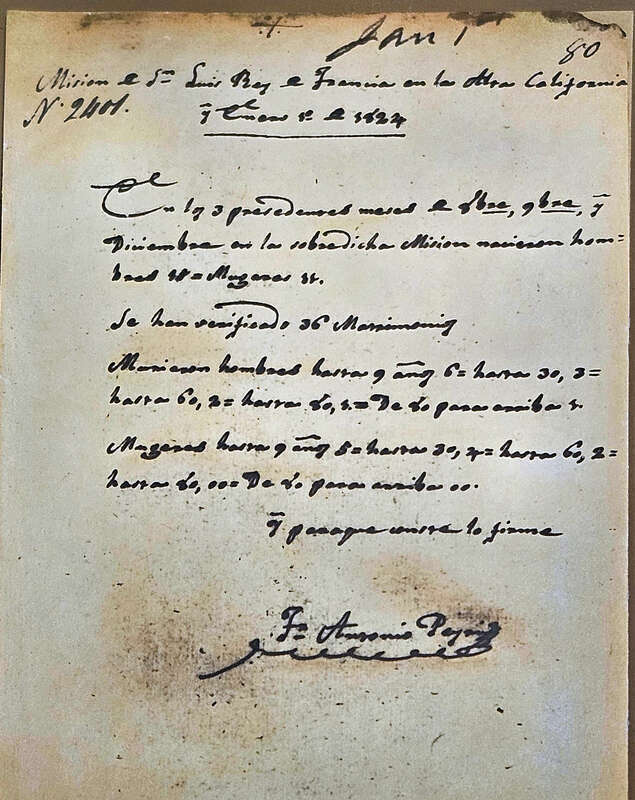 Jan 1
80
Mision de Sn Luis Rey de Francia en la Alta California
No. 2401.
y Enero 1º de 1824
En los 3 presedentes meses de 8bre, 9bre, y
Diciembre en la sobredicha Mision nacieron hom-
bres = Mugeres
Se han verificado 36 Matrimonios
Murieron hombres hasta 9 años 6= hasta 30, 3=
hasta 60, 2= hasta 80, 1.= De 80 para arriba 1.
Mugeres hasta 9 años 5= hasta 30, 4= hasta 60, 2=
hasta 80, 00= De 80 para arriba 00.
y paraque conste lo firme
Fr Antonio Peyri